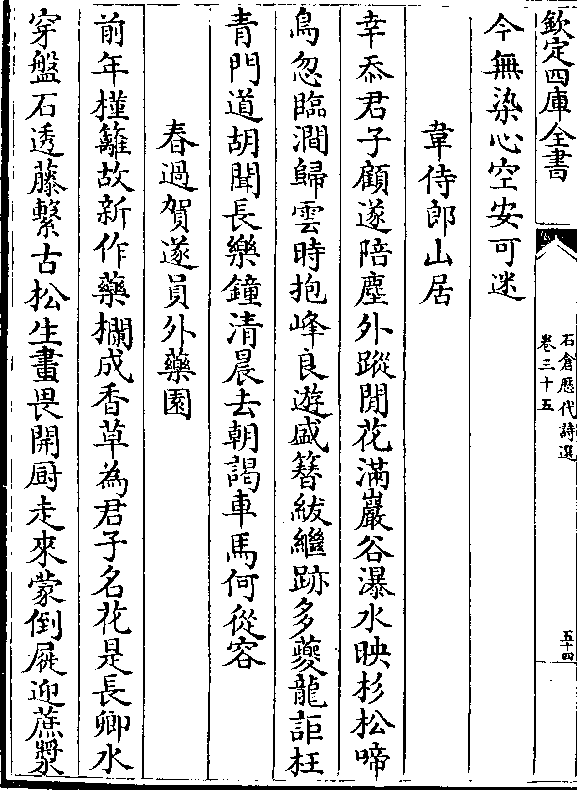 欽定四庫全書
石倉歴代詩選
卷三十五
五十四
今無染心空安可迷
韋侍郎山居
幸忝君子顧遂陪塵外蹤閒花滿巖谷瀑水映杉松啼
鳥忽臨澗歸雲時抱峰良遊盛簪紱繼跡多夔龍詎枉
青門道胡聞長樂鐘清晨去朝謁車馬何從容
春過賀遂員外藥園
前年槿籬故新作藥欄成香草為君子名花是長卿水
穿盤石透藤繫古松生畫畏開厨走來蒙倒屣迎蔗漿